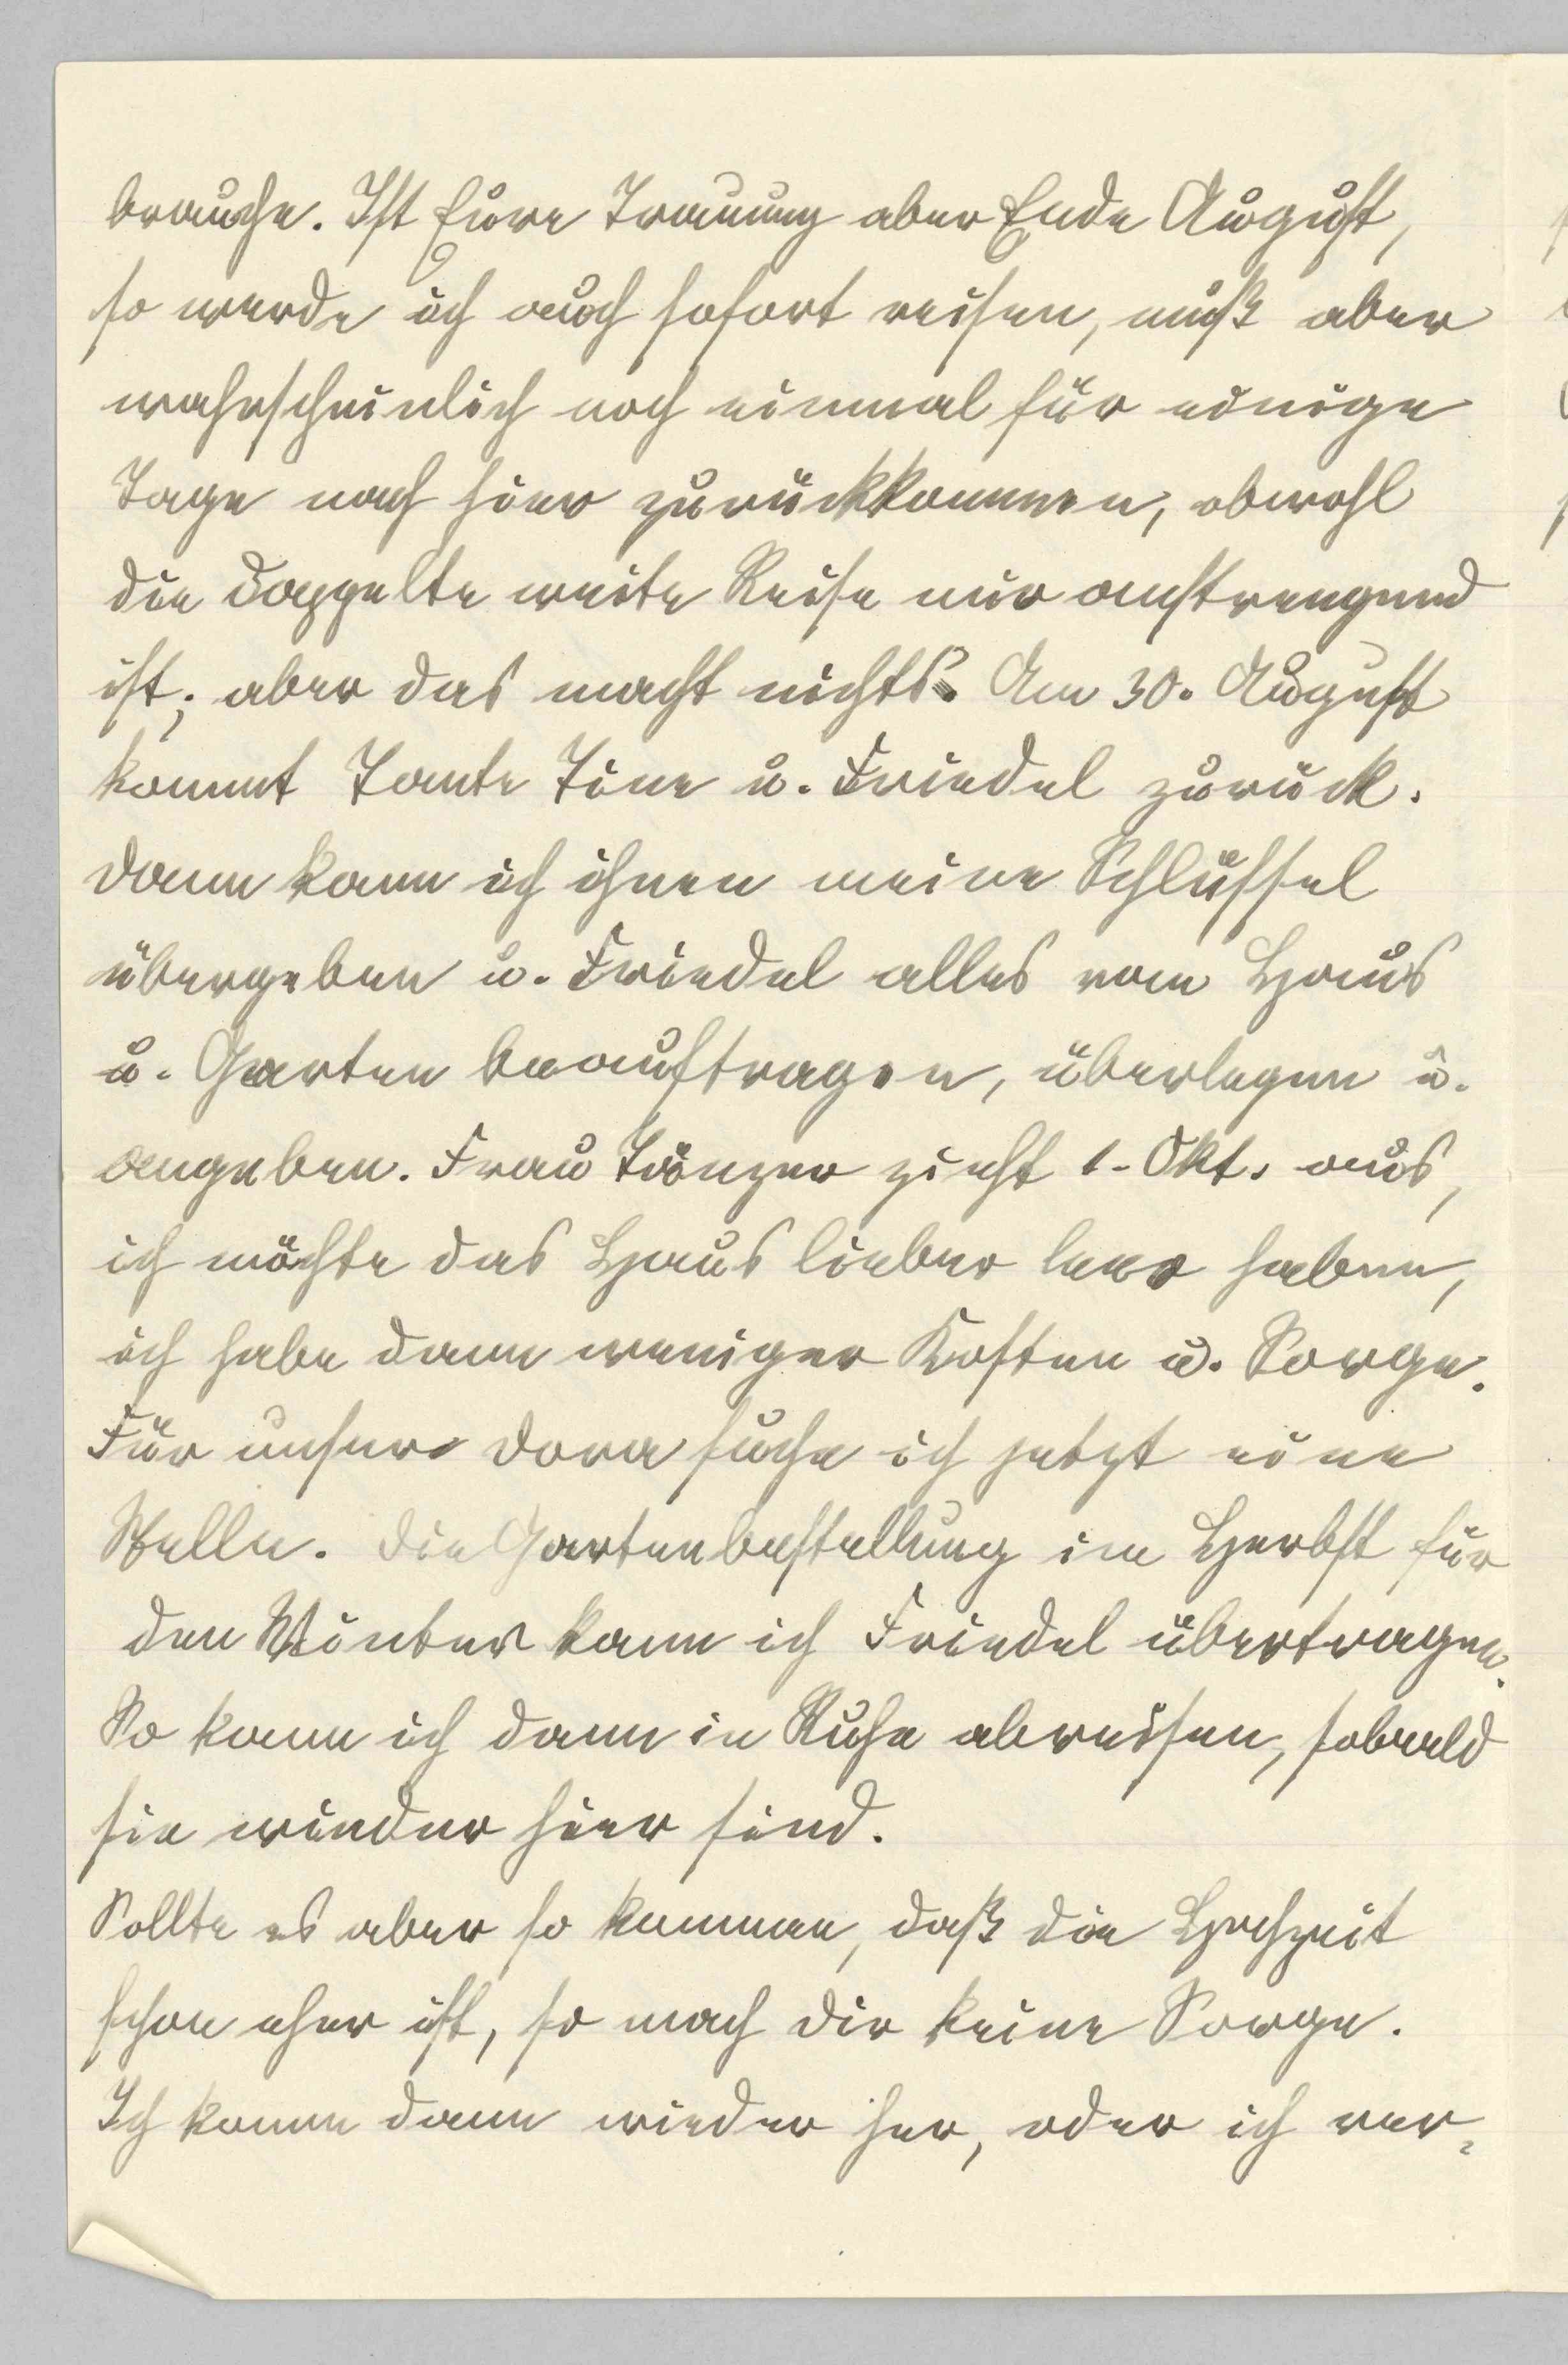 brauche. Ist Eure Trauung aber Ende August,
so werde ich auch sofort reisen, muß aber
wahrscheinlich noch einmal für einige
Tage nach hier zurückkommen, obwohl
die doppelte weite Reise mir anstrengend
ist; aber das macht nichts. Am 30. August
kommt Tante Tine u. Friedel zurück.
Dann kann ich ihnen meine Schlüssel
übergeben u. Friedel alles vom Haus
u. Garten beauftragen, überlegen u.
angeben. Frau Tänzer zieht 1. Okt. aus,
ich möchte das Haus lieber leer haben,
ich habe dann weniger Kosten u. Sorge.
Für unsere Dora suche ich jetzt eine
Stelle. Die Gartenbestellung im Herbst für
den Winter kann ich Friedel übertragen.
So kann ich dann in Ruhe abreisen, sobald
sie wieder hier sind.
Sollte es aber so kommen, daß die Hochzeit
schon eher ist, so mach dir keine Sorge.
Ich komme dann wieder her, oder ich ver-